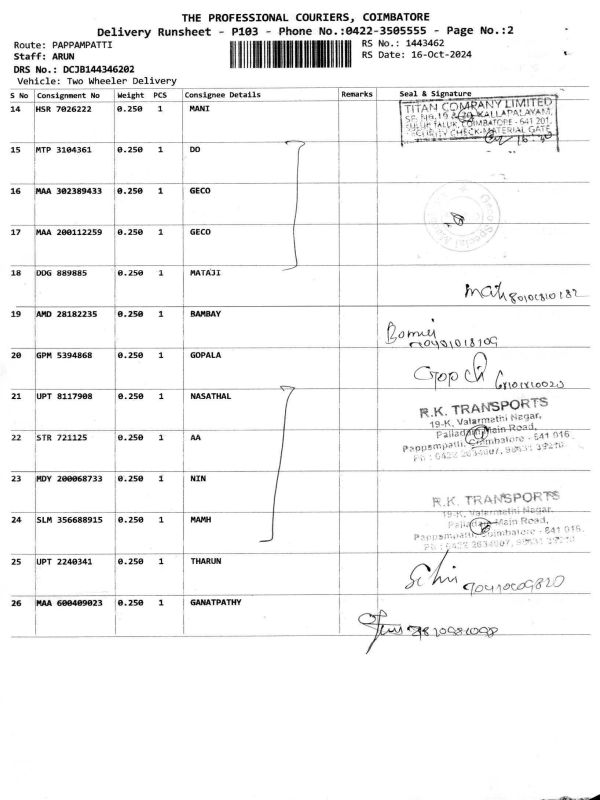 THE PROFESSIONAL COURIERS, COIMBATORE
Delivery Runsheet - P103 - Phone No.:0422-3505555 - Page No.:2
Route: PAPPAMPATTI
RS No.: 1443462
Staff: ARUN
RS Date: 16-Oct-2024
DRS No.: DCJB144346202
Vehicle: Two Wheeler Delivery
S No Consignment No Weight PCS Consignee Details Remarks Seal & Signature
14 HSR 7026222 0.250 1 MANI
TITAN COMPANY LIMITED
KALLAPALAYAM,
SULUR TALUK, COIMBATORE - 641 201.
SECURITY CHECK-MATERIAL GATE
15 MTP 3104361 0.250 1 DO
16 MAA 302389433 0.250 1 GECO
17 MAA 200112259 0.250 1 GECO
18 DDG 889885 0.250 1 MATAJI
19 AMD 28182235 0.250 1 BAMBAY
20 GPM 5394868 0.250 1 GOPALA
21 UPT 8117908 0.250 1 NASATHAL
R.K. TRANSPORTS
19-K, Valarmathi Nagar,
22 STR 721125 0.250 1 AA
Palladam Main Road,
Pappampatti, Coimbatore - 641 016.
23 MDY 200068733 0.250 1 NIN
R.K. TRANSPORTS
19-K, Valarmathi Nagar,
24 SLM 356688915 0.250 1 MAMH
Palladam Main Road,
Pappampatti, Coimbatore - 641 016.
25 UPT 2240341 0.250 1 THARUN
26 MAA 600409023 0.250 1 GANATPATHY